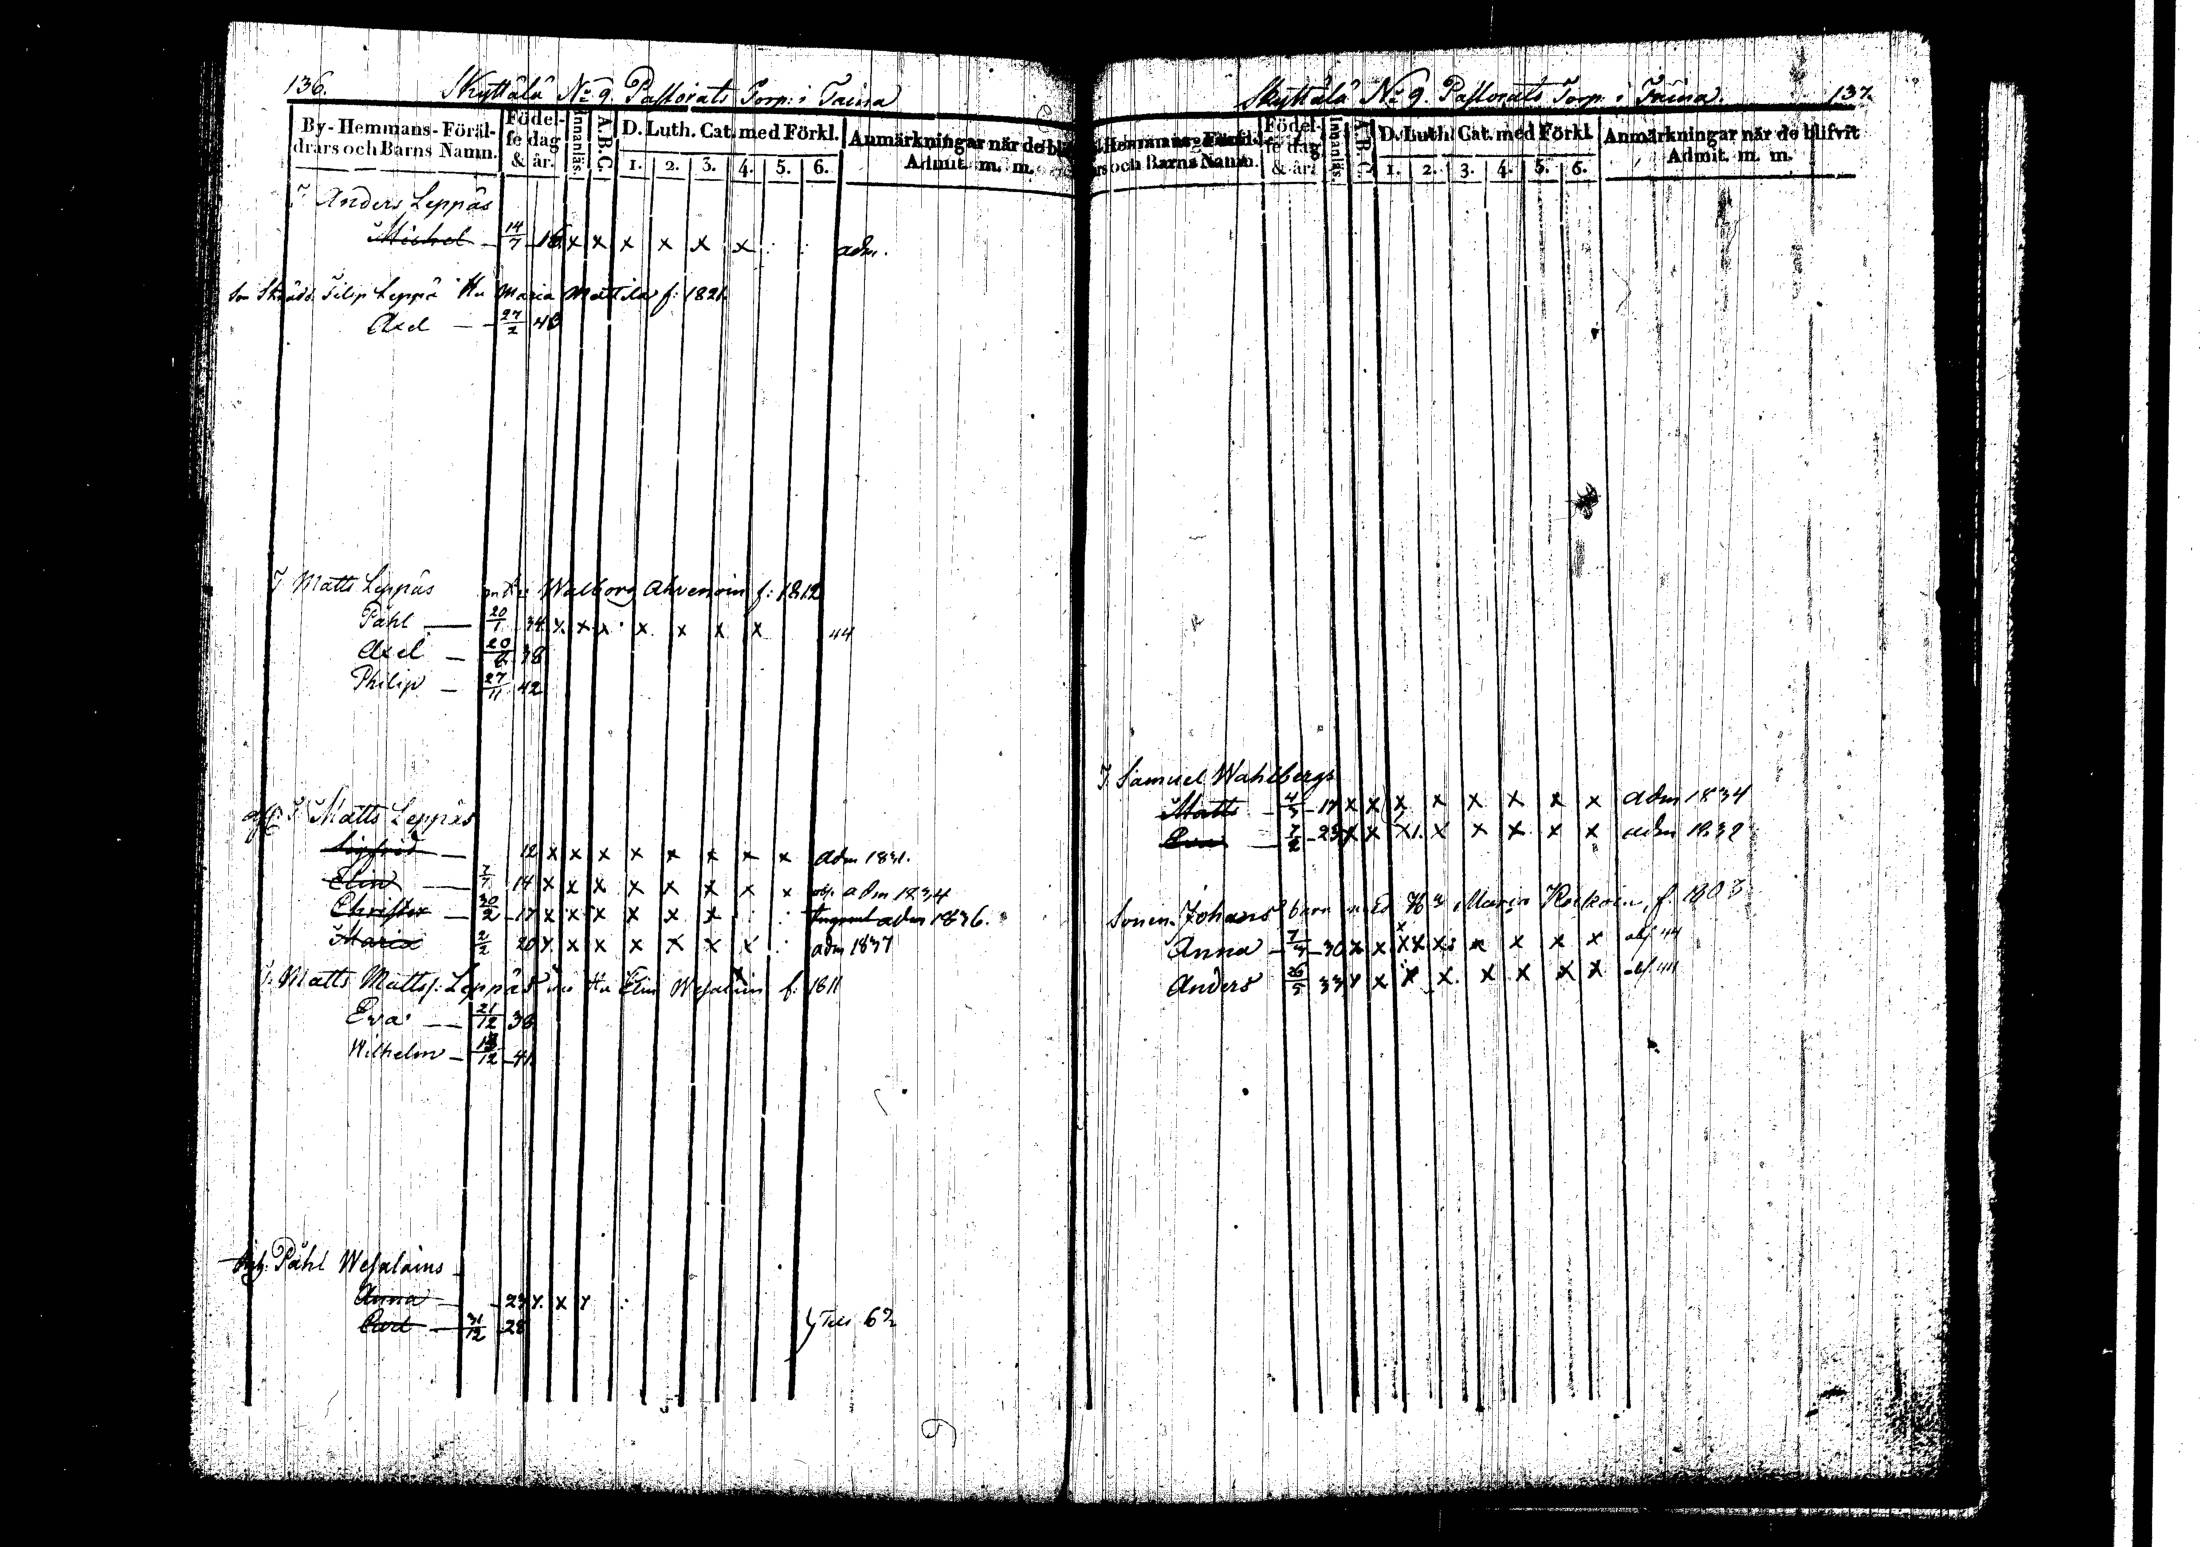 136.
Skyttälä No 9. Pastorats Torp: i Taina
By-Hemmans-Föräl-
drars och Barns Namn.
Födel-
se dag
& år.
Innanläs.
A.B.C.
D. Luth. Cat. med Förkl.
1. 2. 3. 4. 5. 6.
Anmärkningar när de bli
Admit. m. m.
T Anders Leppäs
Michel 14/7 16 x x x x x x : : adm.
Son Filip Leppä Hu Maria Mattila f: 1821.
Axel 27/2 48
T Matts Leppäs m Hu Walborg Ahvenoin f: 1812
Påhl 20/1 34 x x x x x x x 44
Axel 20/ 38
Philip 27/11 42
T Matts Leppäs
Sigfrid 12 x x x x x x x x adm 1831.
Elin 7/7 14 x x x x x x x x adm 1834
Christer 30/2 17 x x x x x x : : adm 1836.
Maria 2/2 20 x x x x x x x : adm 1837
T. Matts Matts: Leppäs Hu Elin Wesalain f: 1811
Eva 21/12 36
Wilhelm 12 41
Påhl Wesalains
Anna 23 x x x
Carl 31/12 28
62
Skyttälä No 9. Pastorats Torp i Taina. 137.
rs och Barns Namn.
Födel-
se dag
& år.
Innanläs.
A.B.C.
D. Luth. Cat. med Förkl.
1. 2. 3. 4. 5. 6.
Anmärkningar när de blifvit
Admit. m. m.
T. Samuel Wahlbergs
Matts 4/3 17 x x x x x x x x adm 1834
Eva 7/2 23 x x x x x x x x adm 1832
Sonen Johans barn med Hu Maria f. 1803
Anna 7/7 30 x x x x x x x x 44
Anders 26/5 33 x x x x x x x x 44